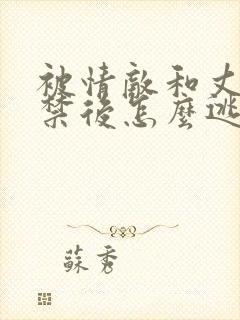 被情敵和丈
禁後怎麼逃
蘇秀